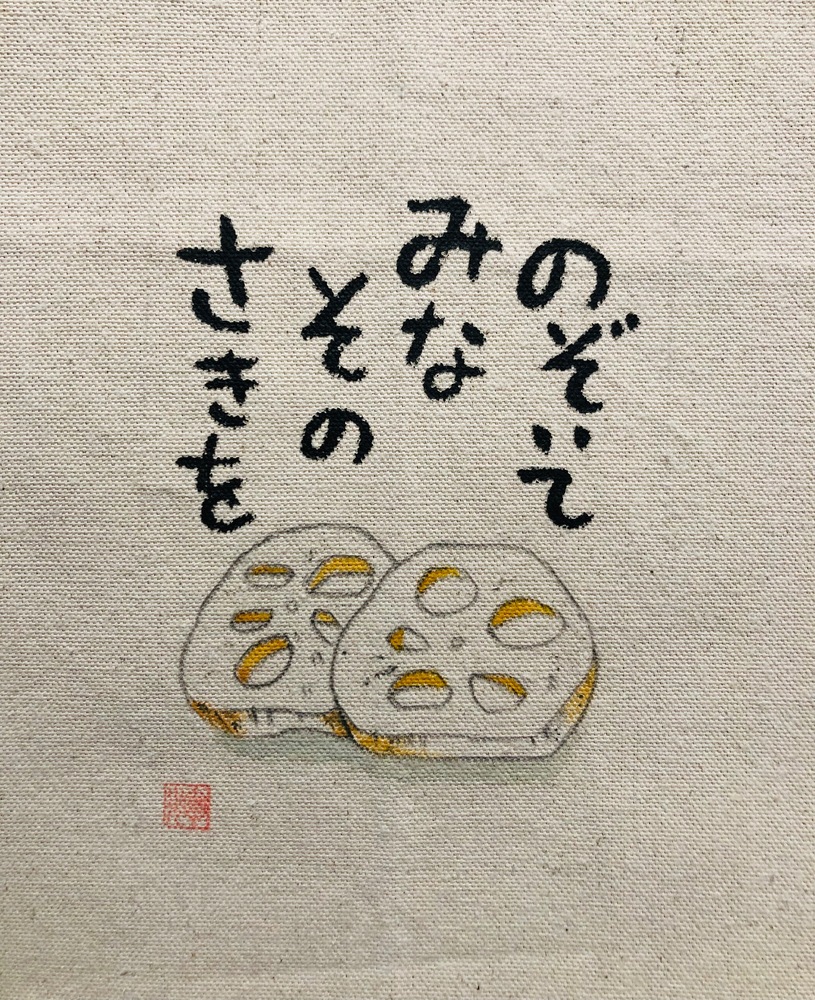 のぞいて
みな
その
さきを